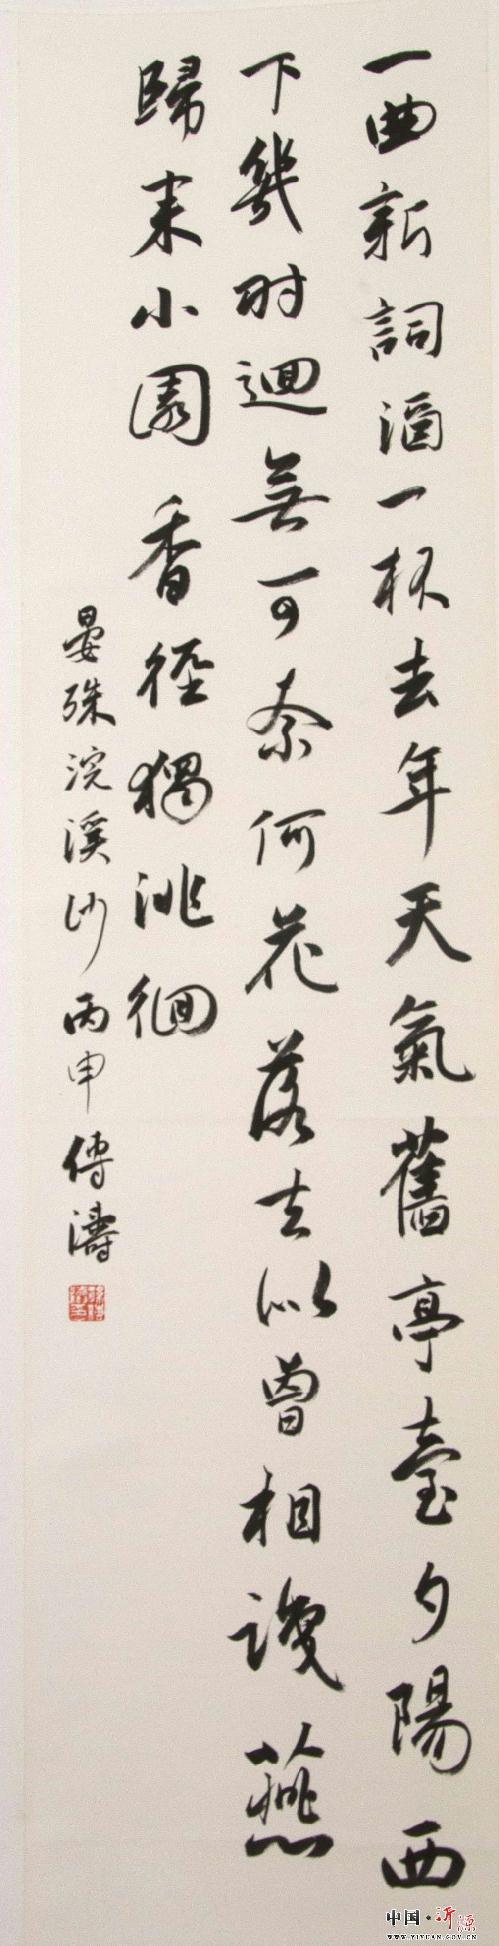 一曲新詞酒一杯去年天氣舊亭臺夕陽西
下幾時迴無可奈何花落去似曾相識燕
歸来小園香徑獨徘徊
晏殊浣溪沙丙申傅濤
中国·沂源
WWW.YIYUAN.GOV.CN